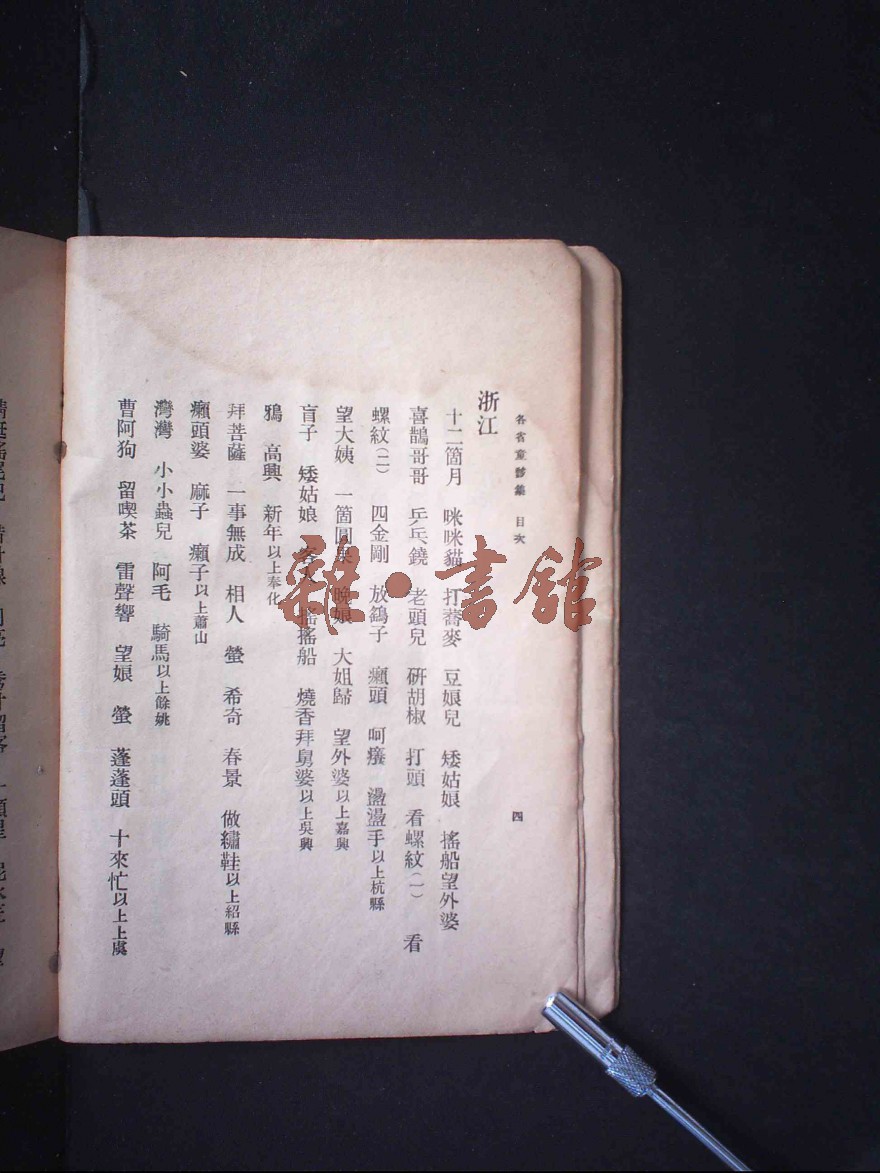 各省童謠集 目次
四
浙江
十二箇月 咪咪貓 打蕎麥 豆娘兒 矮姑娘 搖船望外婆
喜鵲哥哥 乒乓鐃 老頭兒 研胡椒 打頭 看螺紋(一) 看
螺紋(二) 四金剛 放鷂子 癩頭 呵癢 盪盪手以上杭縣
望大姨 一箇圓果 晚娘 大姐歸 望外婆以上嘉興
盲子 矮姑娘 客人 搖搖船 燒香拜舅婆以上吳興
鴉 高興 新年以上奉化
拜菩薩 一事無成 相人 螢 希奇 春景 做繡鞋以上紹縣
癩頭婆 麻子 癩子以上蕭山
灣灣 小小蟲兒 阿毛 騎馬以上餘姚
曹阿狗 留喫茶 雷聲響 望娘 螢 蓬蓬頭 十來忙以上上虞
雜·書館